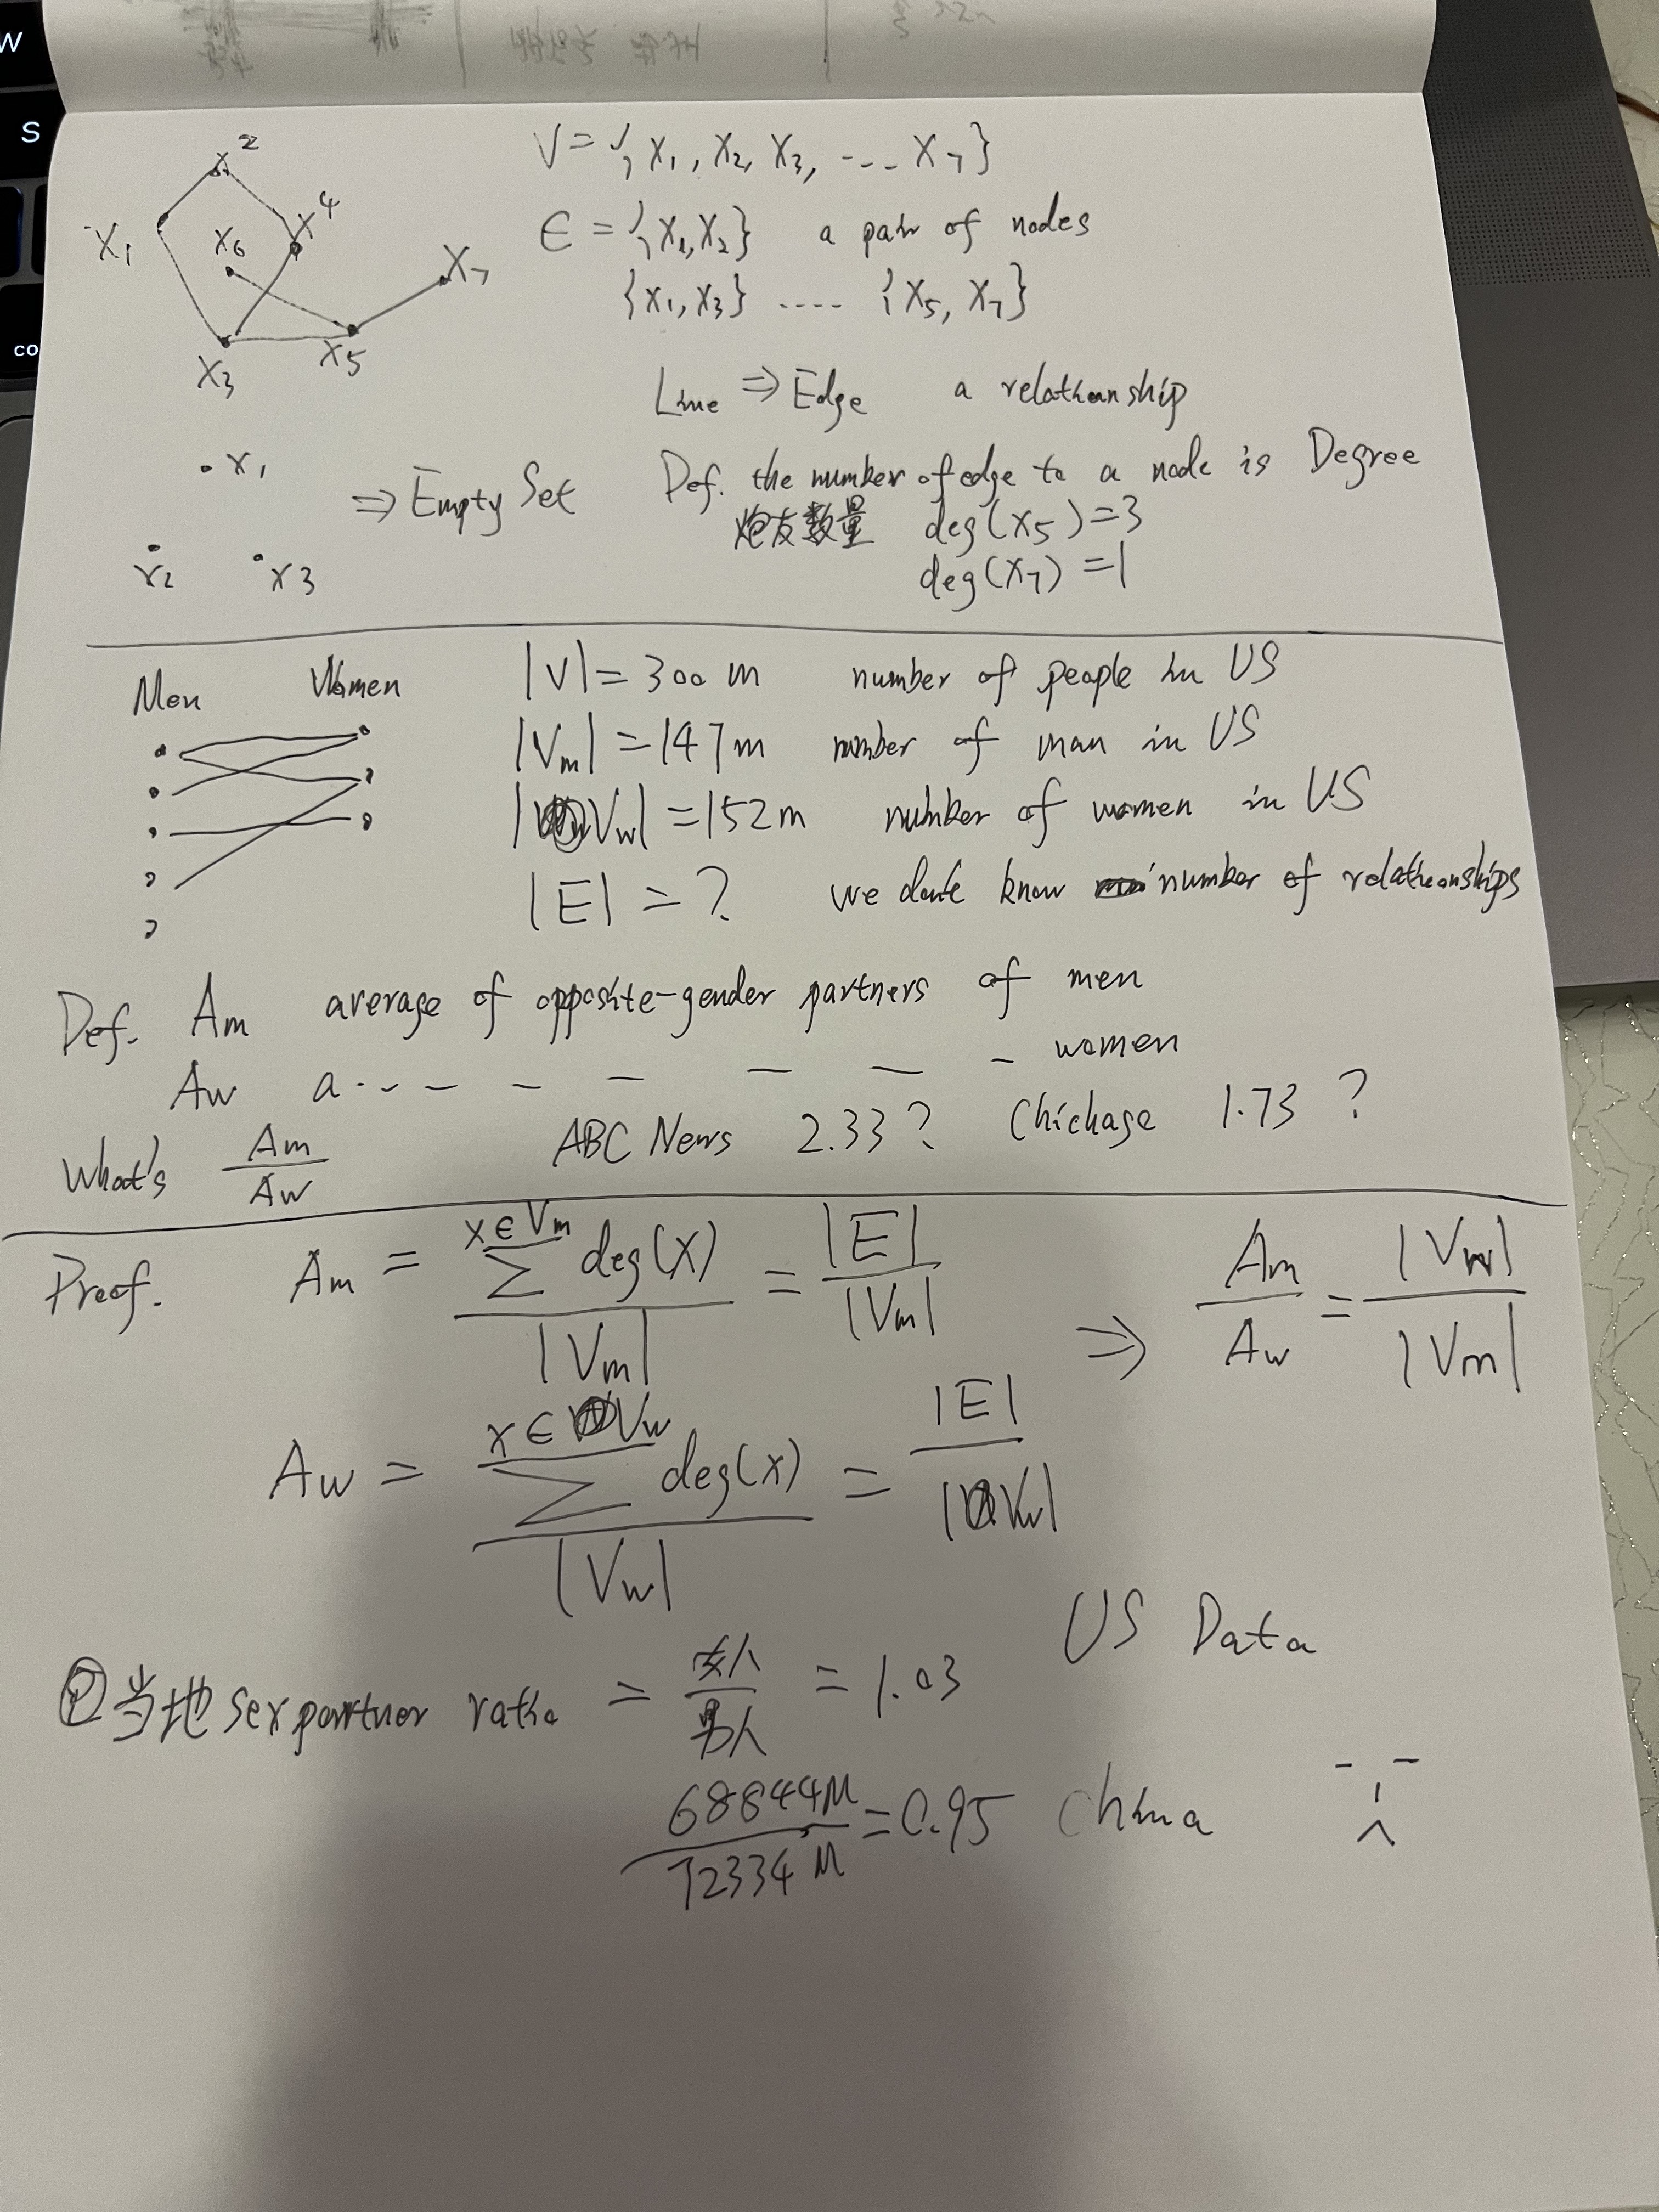 W
S
co
V = {X₁, X₂, X₃, ... X₇}
X₂
X₁
X₆
X₄
X₇
X₃
X₅
E = {X₁,X₂} a pair of nodes
{X₁, X₃} .... {X₅, X₇}
Line ⇒ Edge a relationship
X₁
X₂
X₃
⇒ Empty Set
Def. the number of edge to a node is Degree
炮友数量 deg(X₅)=3
deg(X₇) =1
Men Women
|V| = 300 m number of people in US
|Vm| = 147m number of man in US
|Vw| = 152m number of women in US
|E| = ? we dont know number of relationships
Def. Am average of opposite-gender partners of men
Aw a - - - - - - - - women
What's Am/Aw ABC News 2.33? Chichage 1.73 ?
Proof. Am = x∈Vm ∑ deg(x) / |Vm| = |E| / |Vm| ⇒ Am/Aw = |Vw| / |Vm|
Aw = x∈Vw ∑ deg(x) / |Vw| = |E| / |Vw|
US Data
当地 sex partner ratio = 女人/男人 = 1.03
68844M / 72334M = 0.95 China